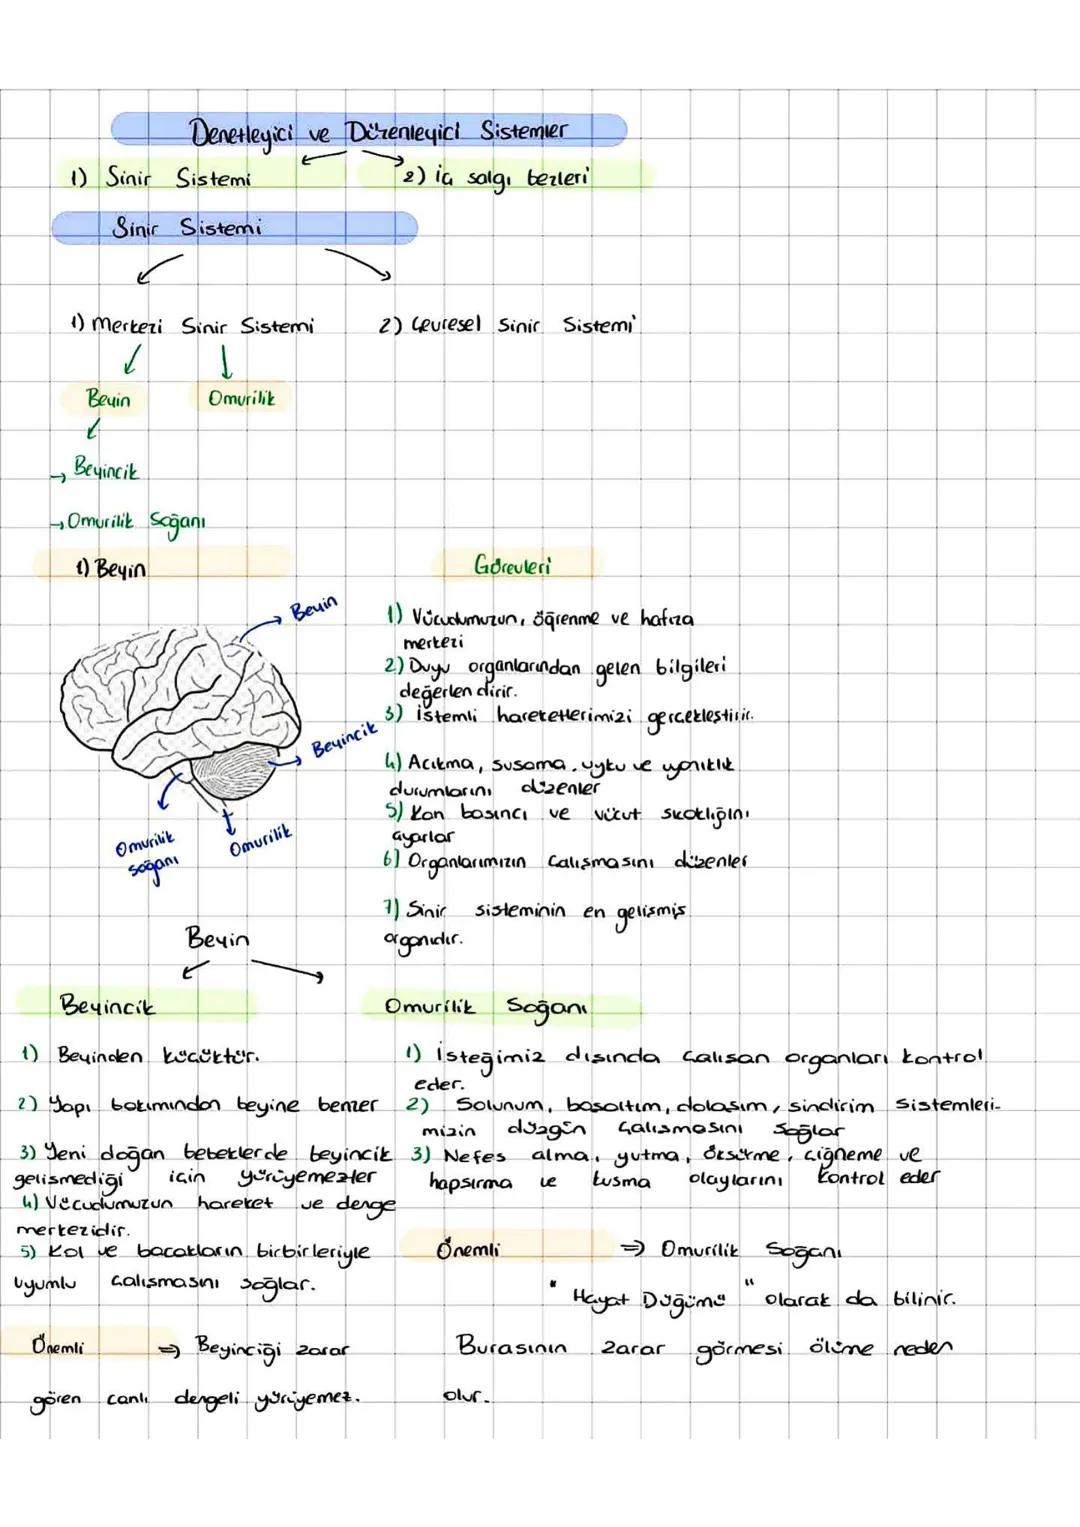 Denetleyici ve Düzenleyici Sistemler
1) Sinir Sistemi
2) İç salgı bezleri
Sinir Sistemi
1) Merkezi Sinir Sistemi
2) Çevresel Sinir Sistemi
Beyin
Omurilik
→ Beyincik
→ Omurilik Soğanı
1) Beyin
Beyin
Beyincik
Omurilik
soğanı
Omurilik
Görevleri
1) Vücudumuzun, öğrenme ve hafıza
merkezi
2) Duyu organlarından gelen bilgileri
değerlendirir.
3) İstemli hareketlerimizi gerçekleştirir.
4) Acıkma, susama, uyku ve uyanıklık
durumlarını düzenler
5) Kan basıncı ve vücut sıcaklığını
ayarlar
6) Organlarımızın çalışmasını düzenler
7) Sinir sisteminin en gelişmiş
organıdır.
Beyin
Beyincik
1) Beyinden küçüktür.
2) Yapı bakımından beyine benzer
3) Yeni doğan bebeklerde beyincik
gelişmediği için yürüyemezler
4) Vücudumuzun hareket ve denge
merkezidir.
5) Kol ve bacakların birbirleriyle
uyumlu çalışmasını sağlar.
Önemli ⇒ Beyinciği zarar
gören canlı dengeli yürüyemez.
Omurilik Soğanı
1) İsteğimiz dışında çalışan organları kontrol
eder.
2) Solunum, boşaltım, dolaşım, sindirim sistemleri-
mizin düzgün çalışmasını sağlar
3) Nefes alma, yutma, öksürme, çiğneme ve
hapşırma ve kusma olaylarını kontrol eder
Önemli ⇒ Omurilik Soğanı
"Hayat Düğümü" olarak da bilinir.
Burasının zarar görmesi ölüme neden
olur.